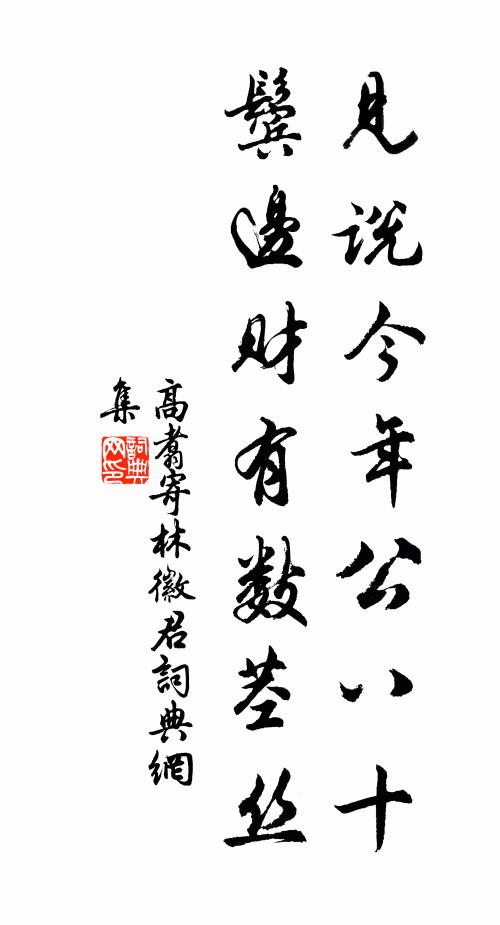 見説今年公八十
鬢邊財有數莖丝
高翥寄林徽君詞典網
集
詞典
网印